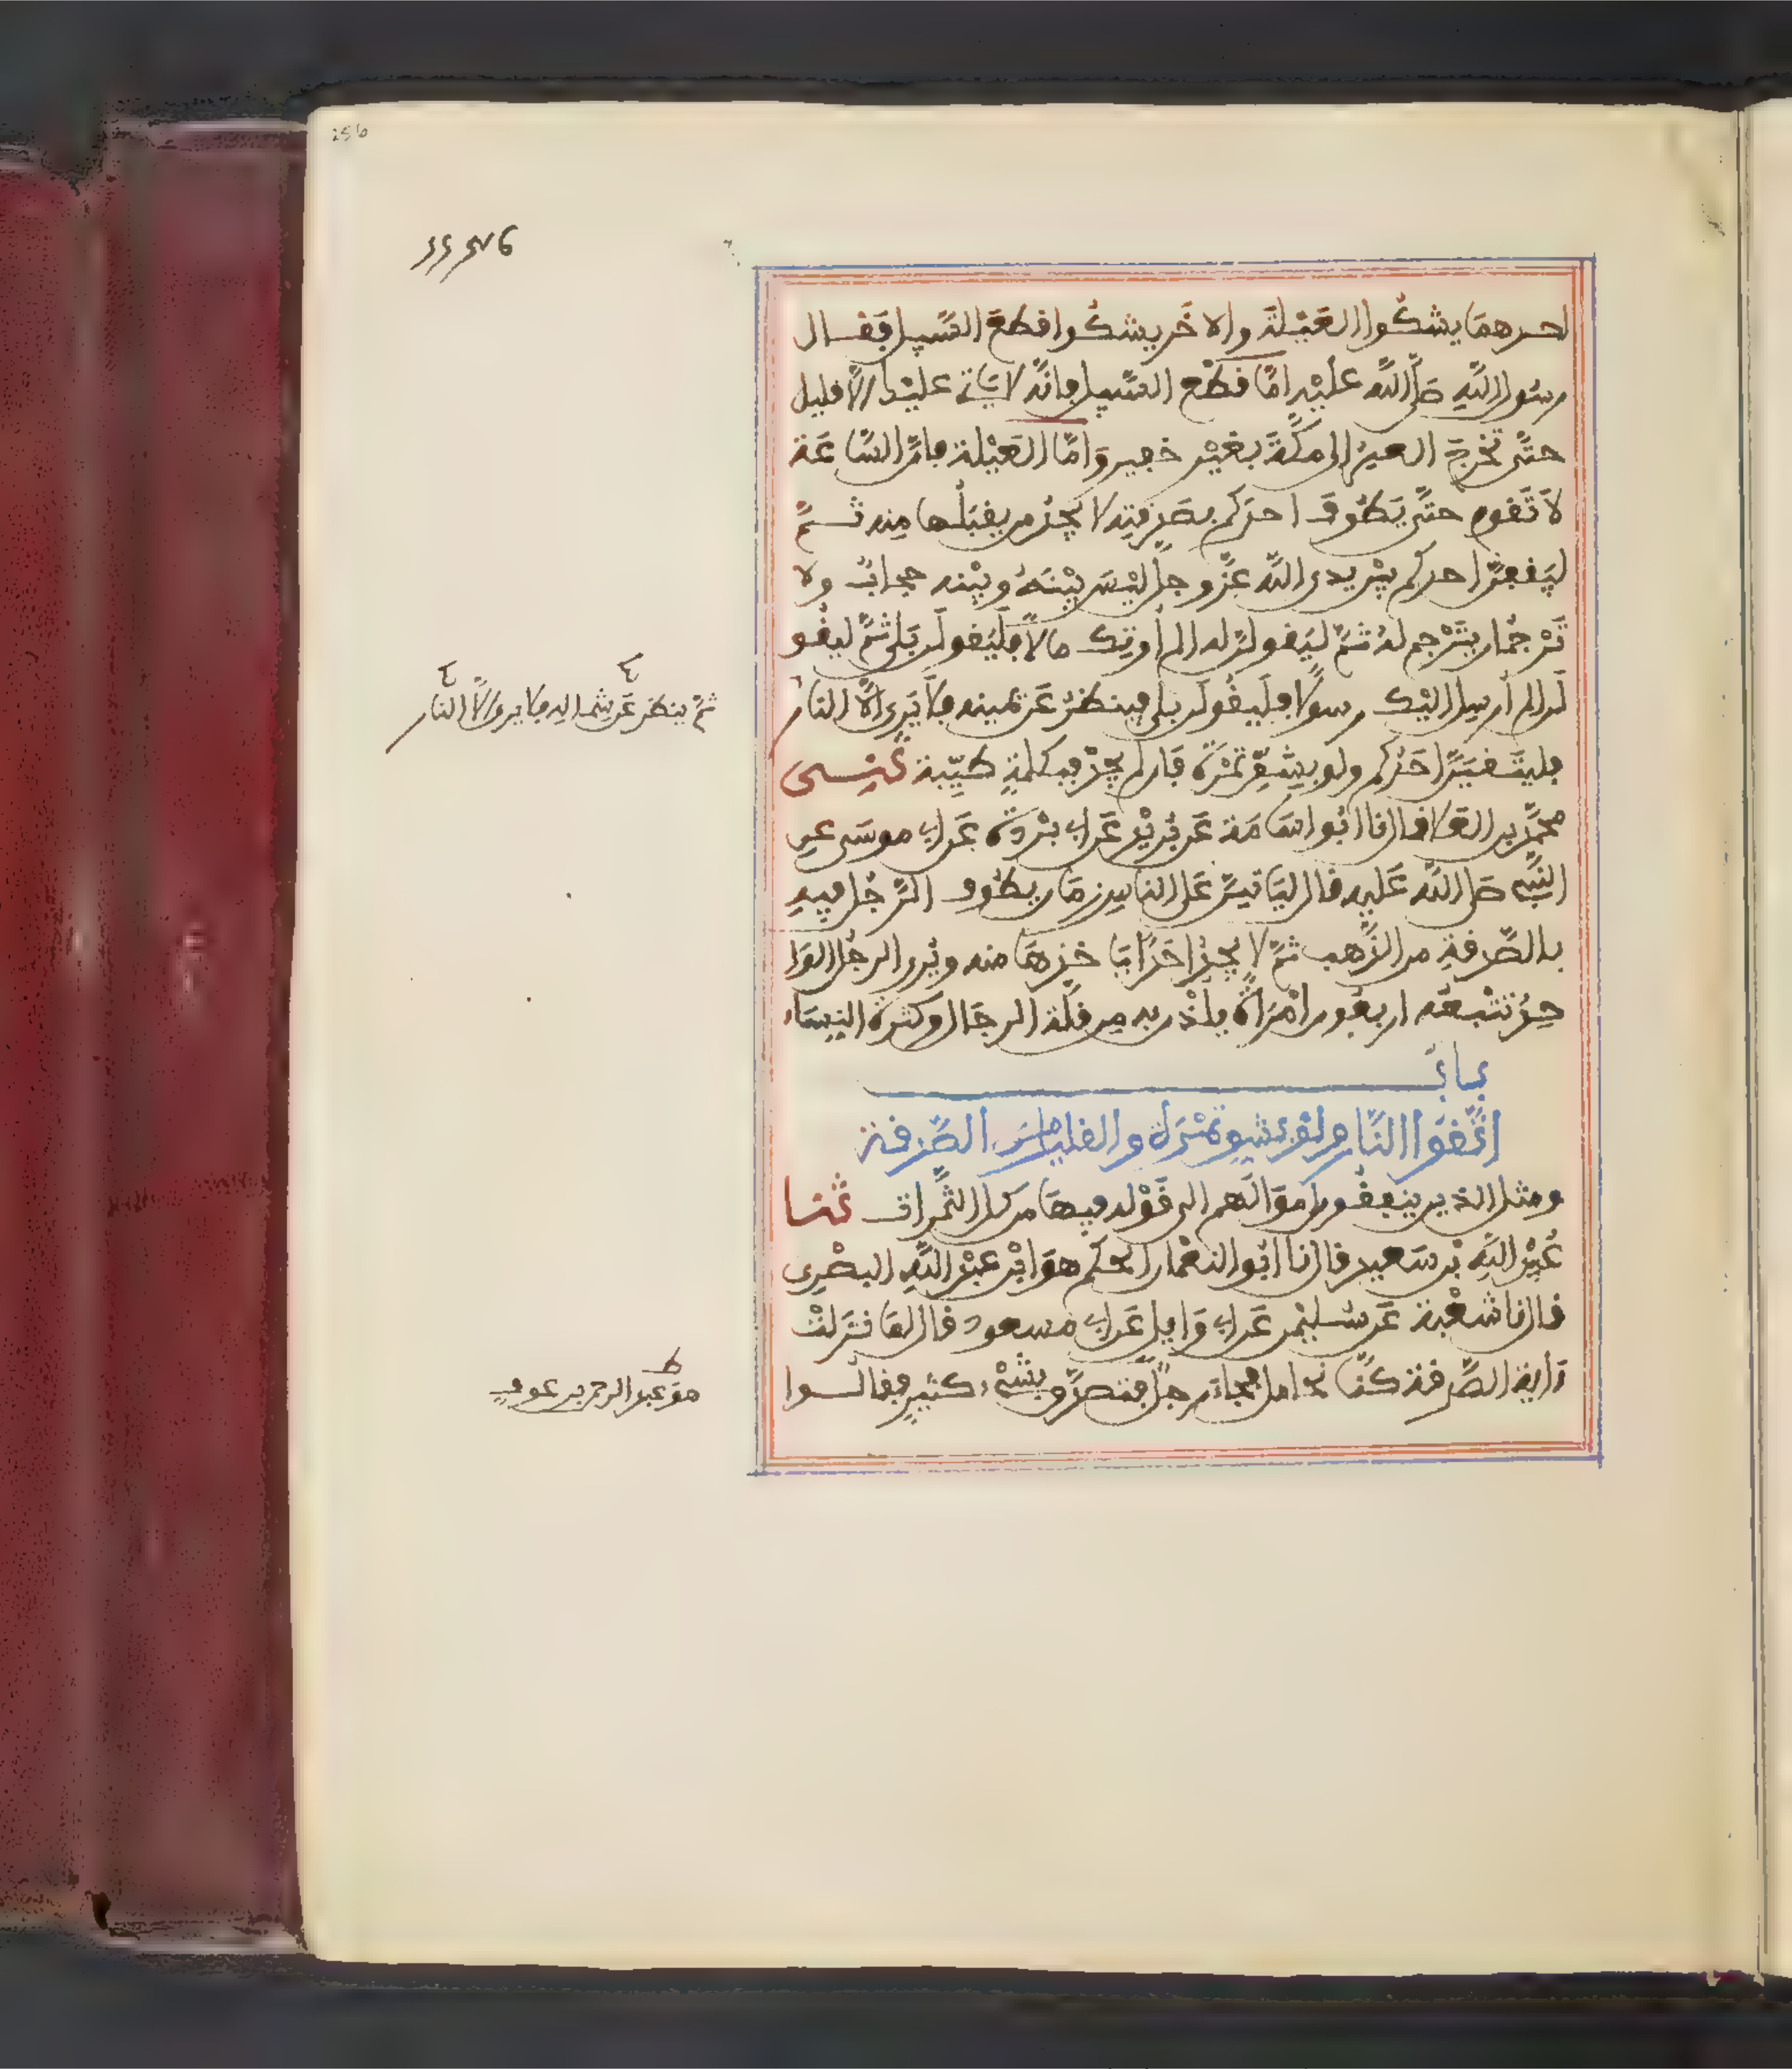 احدهما يشكوا العَيْلة والاخَر يشكوا قطعَ السّبيل فقال
رسُول اللّهِ صَلّى اللّه عليْه امّا قطْع السّبيل فانّه لا ياتي عليْك الّا قليل
حتّى تخرجَ العيرُ الى مكّةَ بغيْر خفير وَامّا العَيْلة فانّ السّاعَة
لاَ تَقوم حتّى يَطُوفَ احدكم بصَدقتِه لا يجدُ من يقبَلُها مِنه ثمّ
ليَقفنّ احدكم بيْن يدى اللّه عزّ وجلّ ليْسَ بيْنَهُ وبيْنه حجابٌ ولا
تَرْجُمان يتَرْجم لهُ ثمّ ليَقولنّ له الم أُوتِك مالاً فليَقولَن بَلى ثمّ ليقُو
لَن الم أرسِل اليْك رسولا فلَيقُولَن بلى فينظرُ عَن يمينه فلا يَرى الّا النارَ
ثمّ ينظر عَن شماله فلا يرى الّا النار
فليتّقيَنّ احَدُكم ولو بِشِقّ تمْرَة فَان لم يجدْ فبكلمةٍ طيّبة ثنى
محمّد بن العَلا قال نا ابُو اسَامَة عَن بُريْد عَن ابى بُرْدَة عَن ابى موسَى عن
النّبِىّ صَلى اللّه عَليه قال ليَاتينّ عَلى الناسِ زمَان يطُوف الرّجُل فيهِ
بالصّدقةِ من الذّهب ثمّ لا يجدُ احَدًا يَاخذهَا منه ويُرى الرجُل الوَا
حِدُ تتْبعُه اربعُون امْرَاةً يلُذْن به مِن قلّة الرجَال وكثرة النِسَاء
بابُ
اتّقوا النّار ولوْ بشقّ تمْرَة والقليل من الصّدقة
ومثل الذين ينفقُون امْوَالَهم الى قَوْله فيهَا من كل الثّمرات ثنا
عُبيْد اللّهِ بْن سَعيد قال نا ابُو النعْمان الحكم هوَ ابْن عبْد اللّهِ البصْرى
قال نا شعْبة عَن سُليْمٰن عَن ابى وَايل عَن ابى مسعود قال لمّا نزَلتْ
ءاية الصّدقة كنّا نحامل فجاءَ رجلٌ فتصدّق بشىْء كثير فقالُوا
هوَ عبد الرحمٰن بن عوف
256